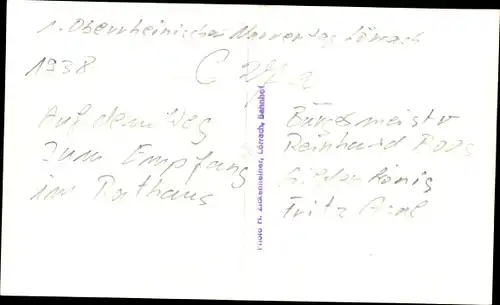 1. Oberrheinischer Narrentag Lörrach
1938
Auf dem Weg
zum Empfang
im Rathaus
Photo H. Zickenheiner, Lörrach, Bahnhof
Bürgermeister
Reinhard Boos
Gildenkönig
Fritz